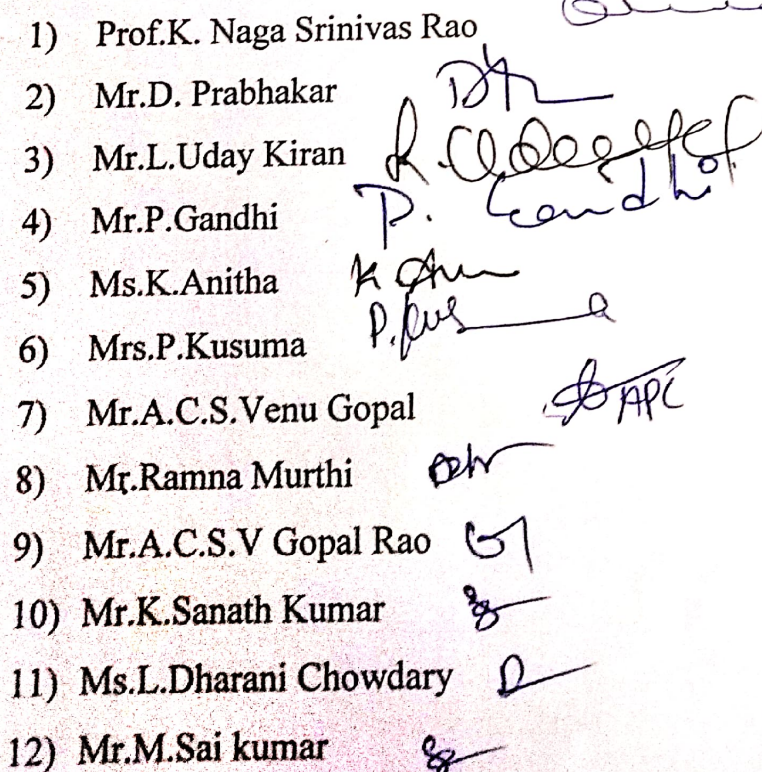 1) Prof.K. Naga Srinivas Rao
2) Mr.D. Prabhakar
3) Mr.L.Uday Kiran
4) Mr.P.Gandhi P. Gandhi
5) Ms.K.Anitha
6) Mrs.P.Kusuma
7) Mr.A.C.S.Venu Gopal APC
8) Mr.Ramna Murthi
9) Mr.A.C.S.V Gopal Rao
10) Mr.K.Sanath Kumar
11) Ms.L.Dharani Chowdary
12) Mr.M.Sai kumar